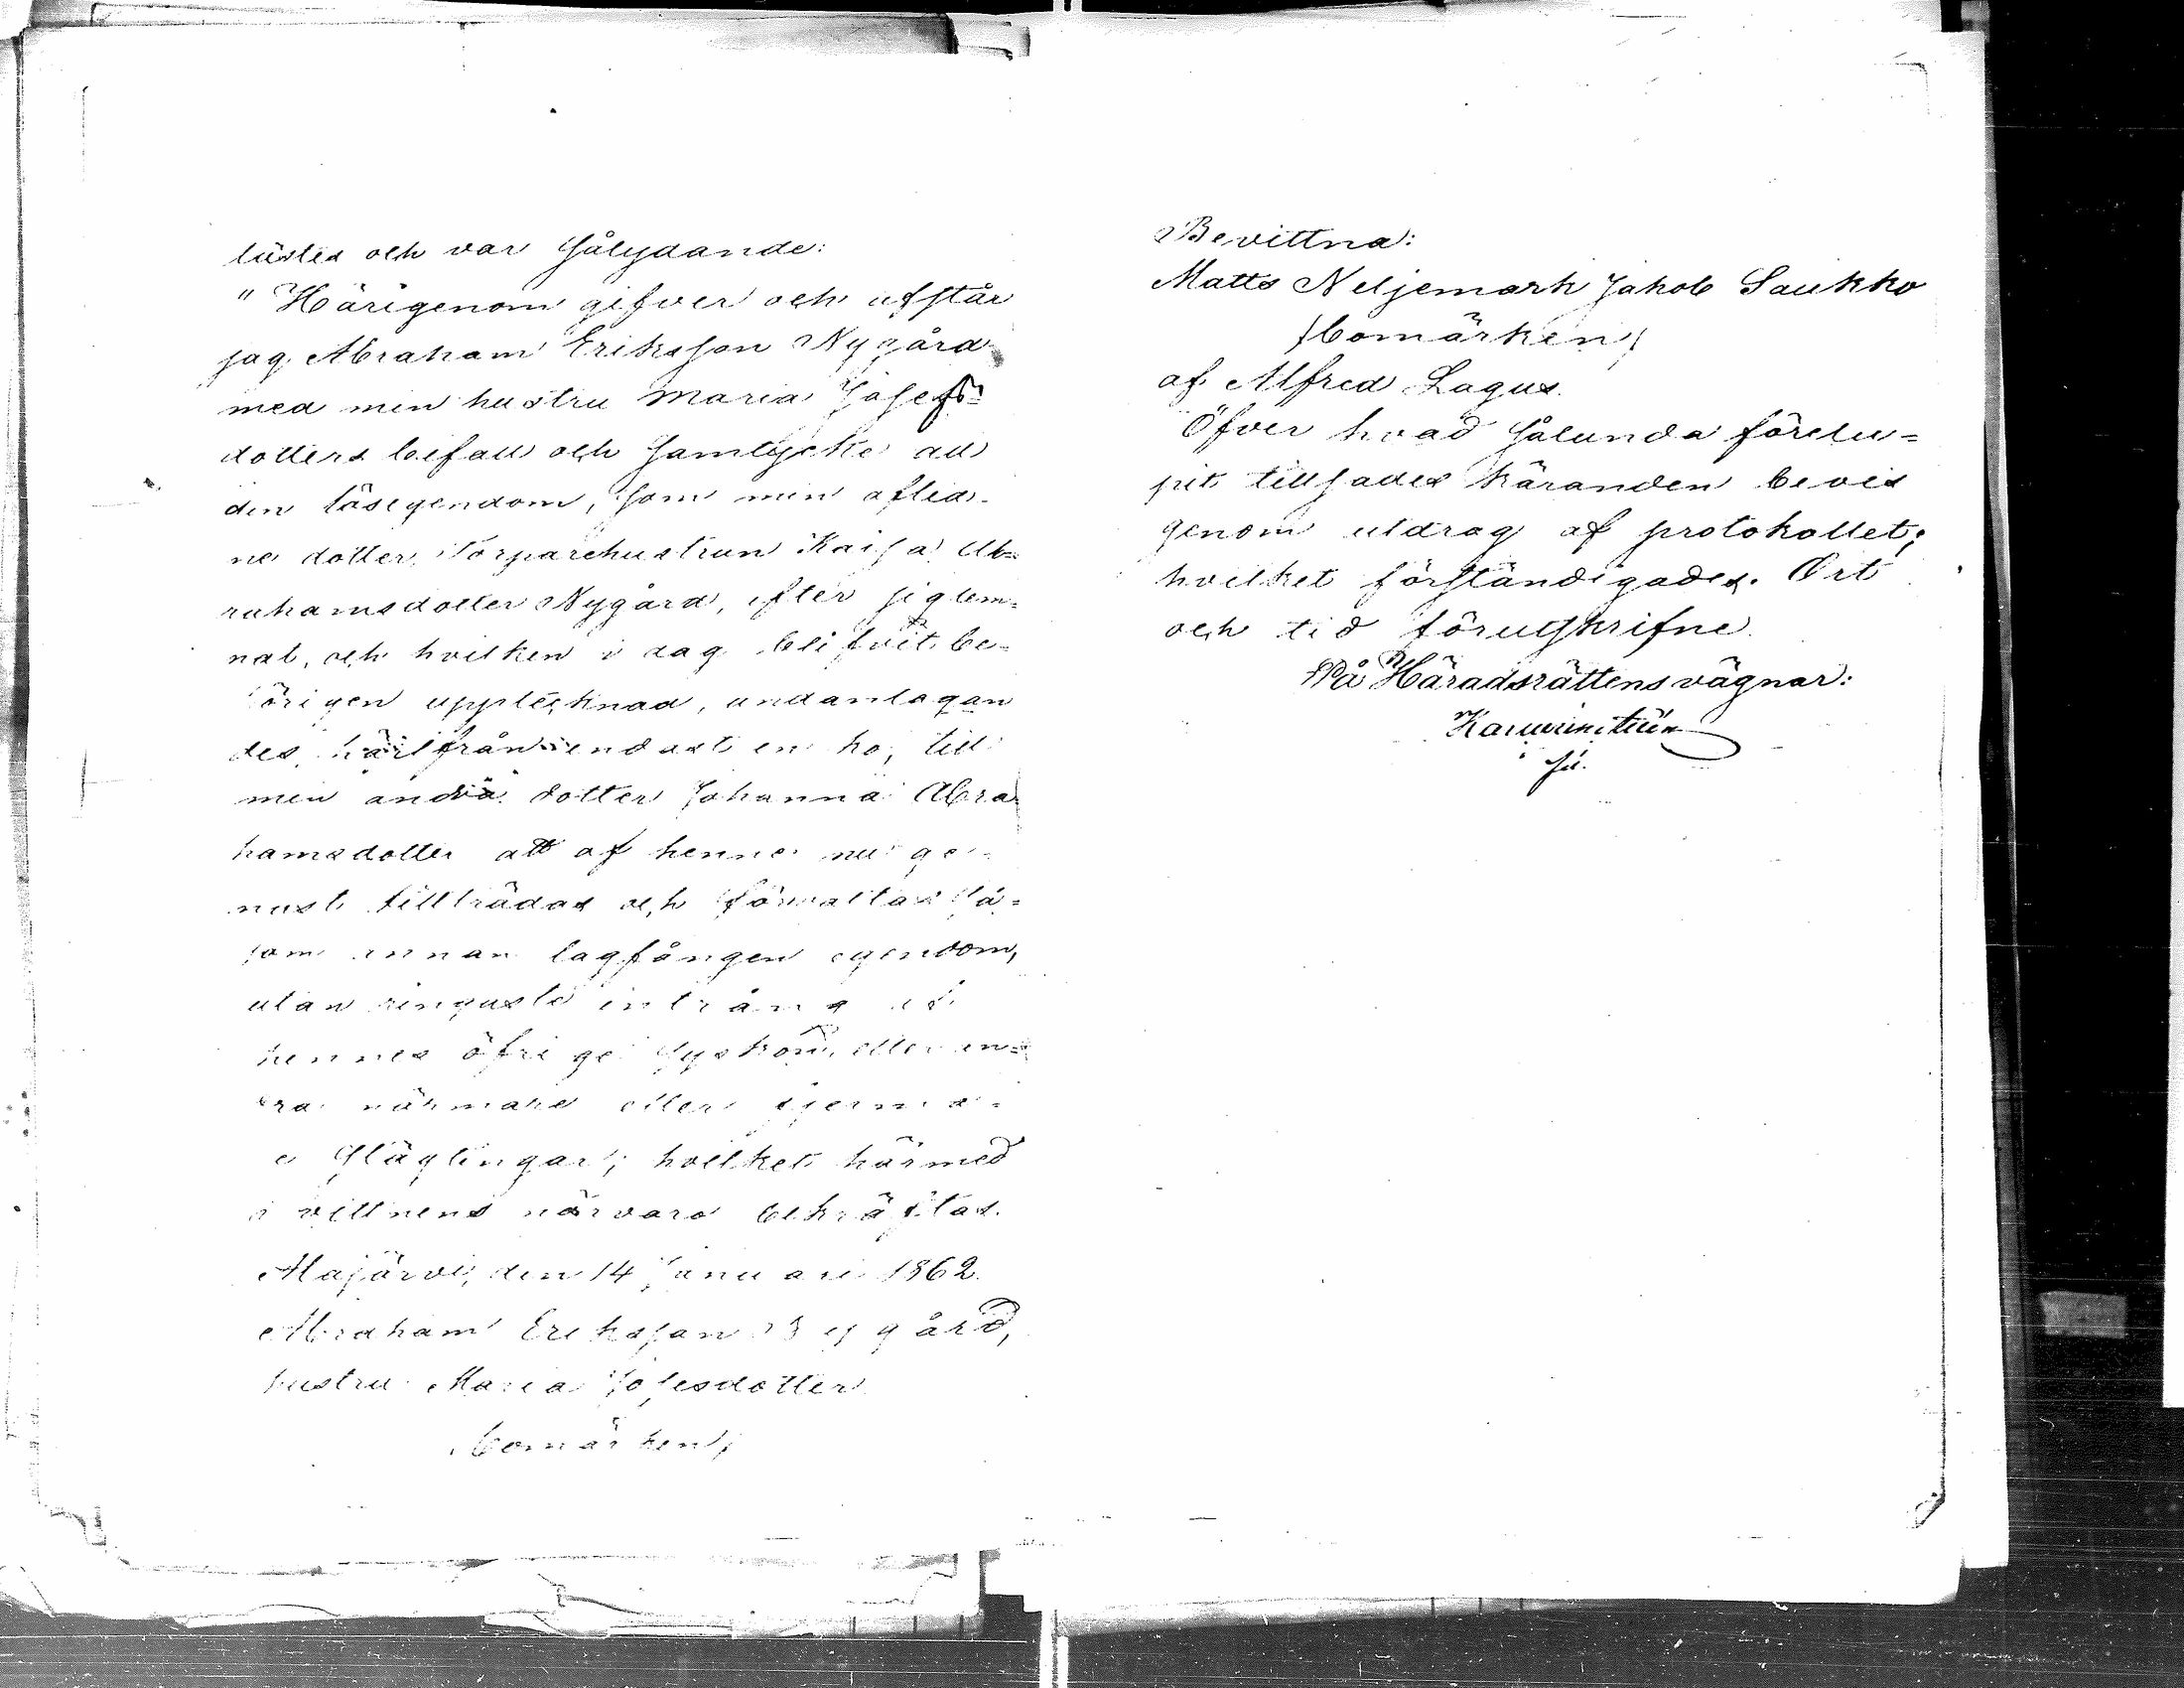 lästes och var sålydande:
" Härigenom gifver och afstår
jag Abraham Eriksson Nygård
med min hustru Maria Josefs=
dotters bifall och samtycke all
den lösegendom, som min aflid-
ne dotter, Torparehustrun Kaisa Ab=
rahamsdotter Nygård, efter sig lem=
nat, och hvilken i dag blifvit be=
hörigen upptecknad, undantagan
des härifrån endast en ko, till
min andra dotter Johanna Abra
hamsdotter att af henne nu ge=
nast tillträdas och förvaltas så=
som annan lagfången egendom,
utan ringaste intrång af
hennes öfrige syskon, eller an=
dra närmare eller fjerma=
e släglingar; hvilket härmed
i vittnens närvaro bekräftas.
Alajärvi, den 14 Januari 1862.
Abraham Eriksson Nygård,
hustru Maria Josefsdotter
(bomärken)
Bevittna:
Matts Neljemark Jakob Saukko
(bomärken)
af Alfred Lagus.
Öfver hvad sålunda förelu=
pit tillsades käranden bevis
genom utdrag af protokollet;
hvilket förständigades. Ort
och tid förutskrifne.
På Häradsrättens vägnar: